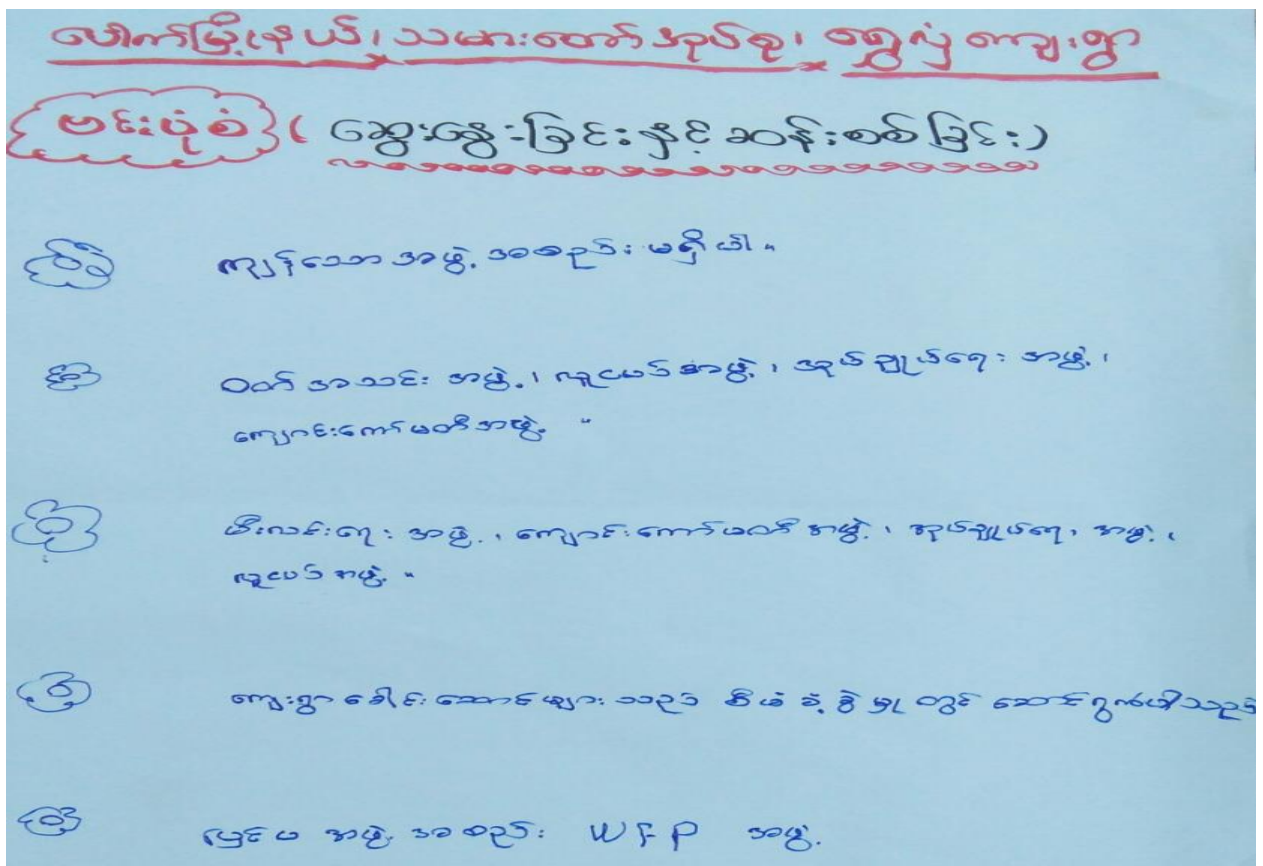 ပေါက်မြို့နယ်၊ သမားတော်အုပ်စု၊ ရွှေလှံကျေးရွာ
ဗင်းပုံစံ (ဆွေးနွေးခြင်းနှင့် ဆန်းစစ်ခြင်း)
ကျန်သော အဖွဲ့ အစည်း မရှိပါ။
ဝတ် အသင်း အဖွဲ့၊ လူငယ် အဖွဲ့၊ အုပ်ချုပ်ရေး အဖွဲ့၊
ကျောင်းကော်မတီအဖွဲ့။
မီးလင်းရေး အဖွဲ့၊ ကျောင်းကော်မတီ အဖွဲ့၊ အုပ်ချုပ်ရေး အဖွဲ့၊
လူငယ် အဖွဲ့။
ကျေးရွာ ခေါင်းဆောင်များ သည် စီမံ ခံ့ခွဲ မှု တွင် ဆောင်ရွက်ပါသည်
ပြင်ပ အဖွဲ့ အစည်း WFP အဖွဲ့